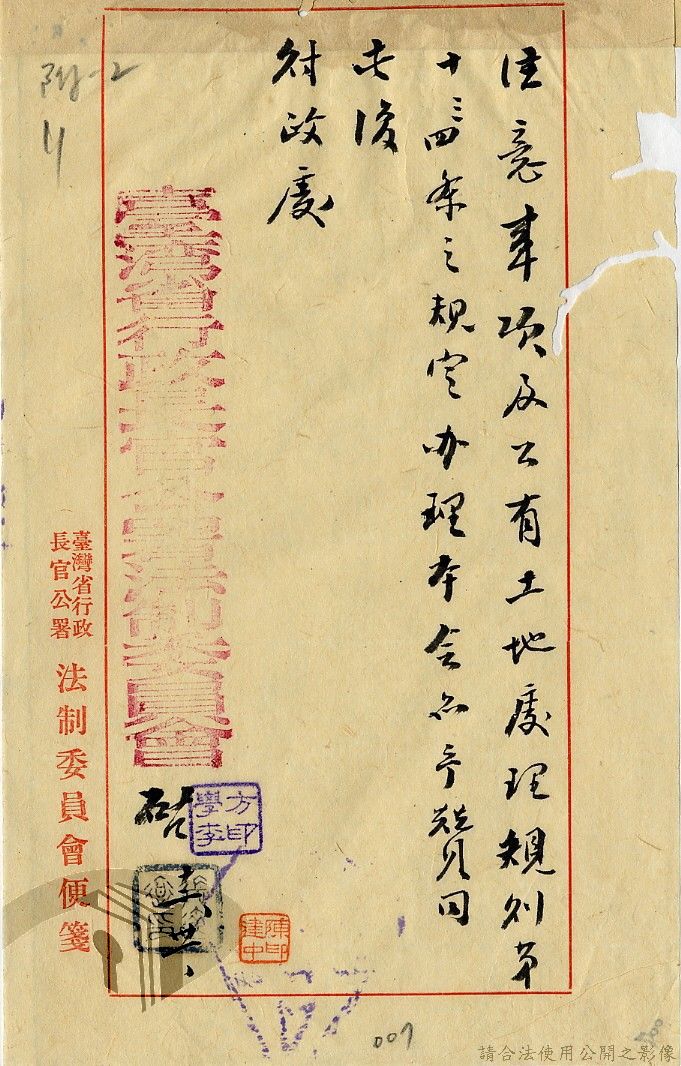 附一2
注意事項及公有土地處理規則第
十三四条之規定办理本会亦予贊同
此復
財政處
臺灣省行政長官公署法制委員會
啟
方印學李
陳印建中
臺灣省行政長官公署 法制委員會便箋
007
請合法使用公開之影像